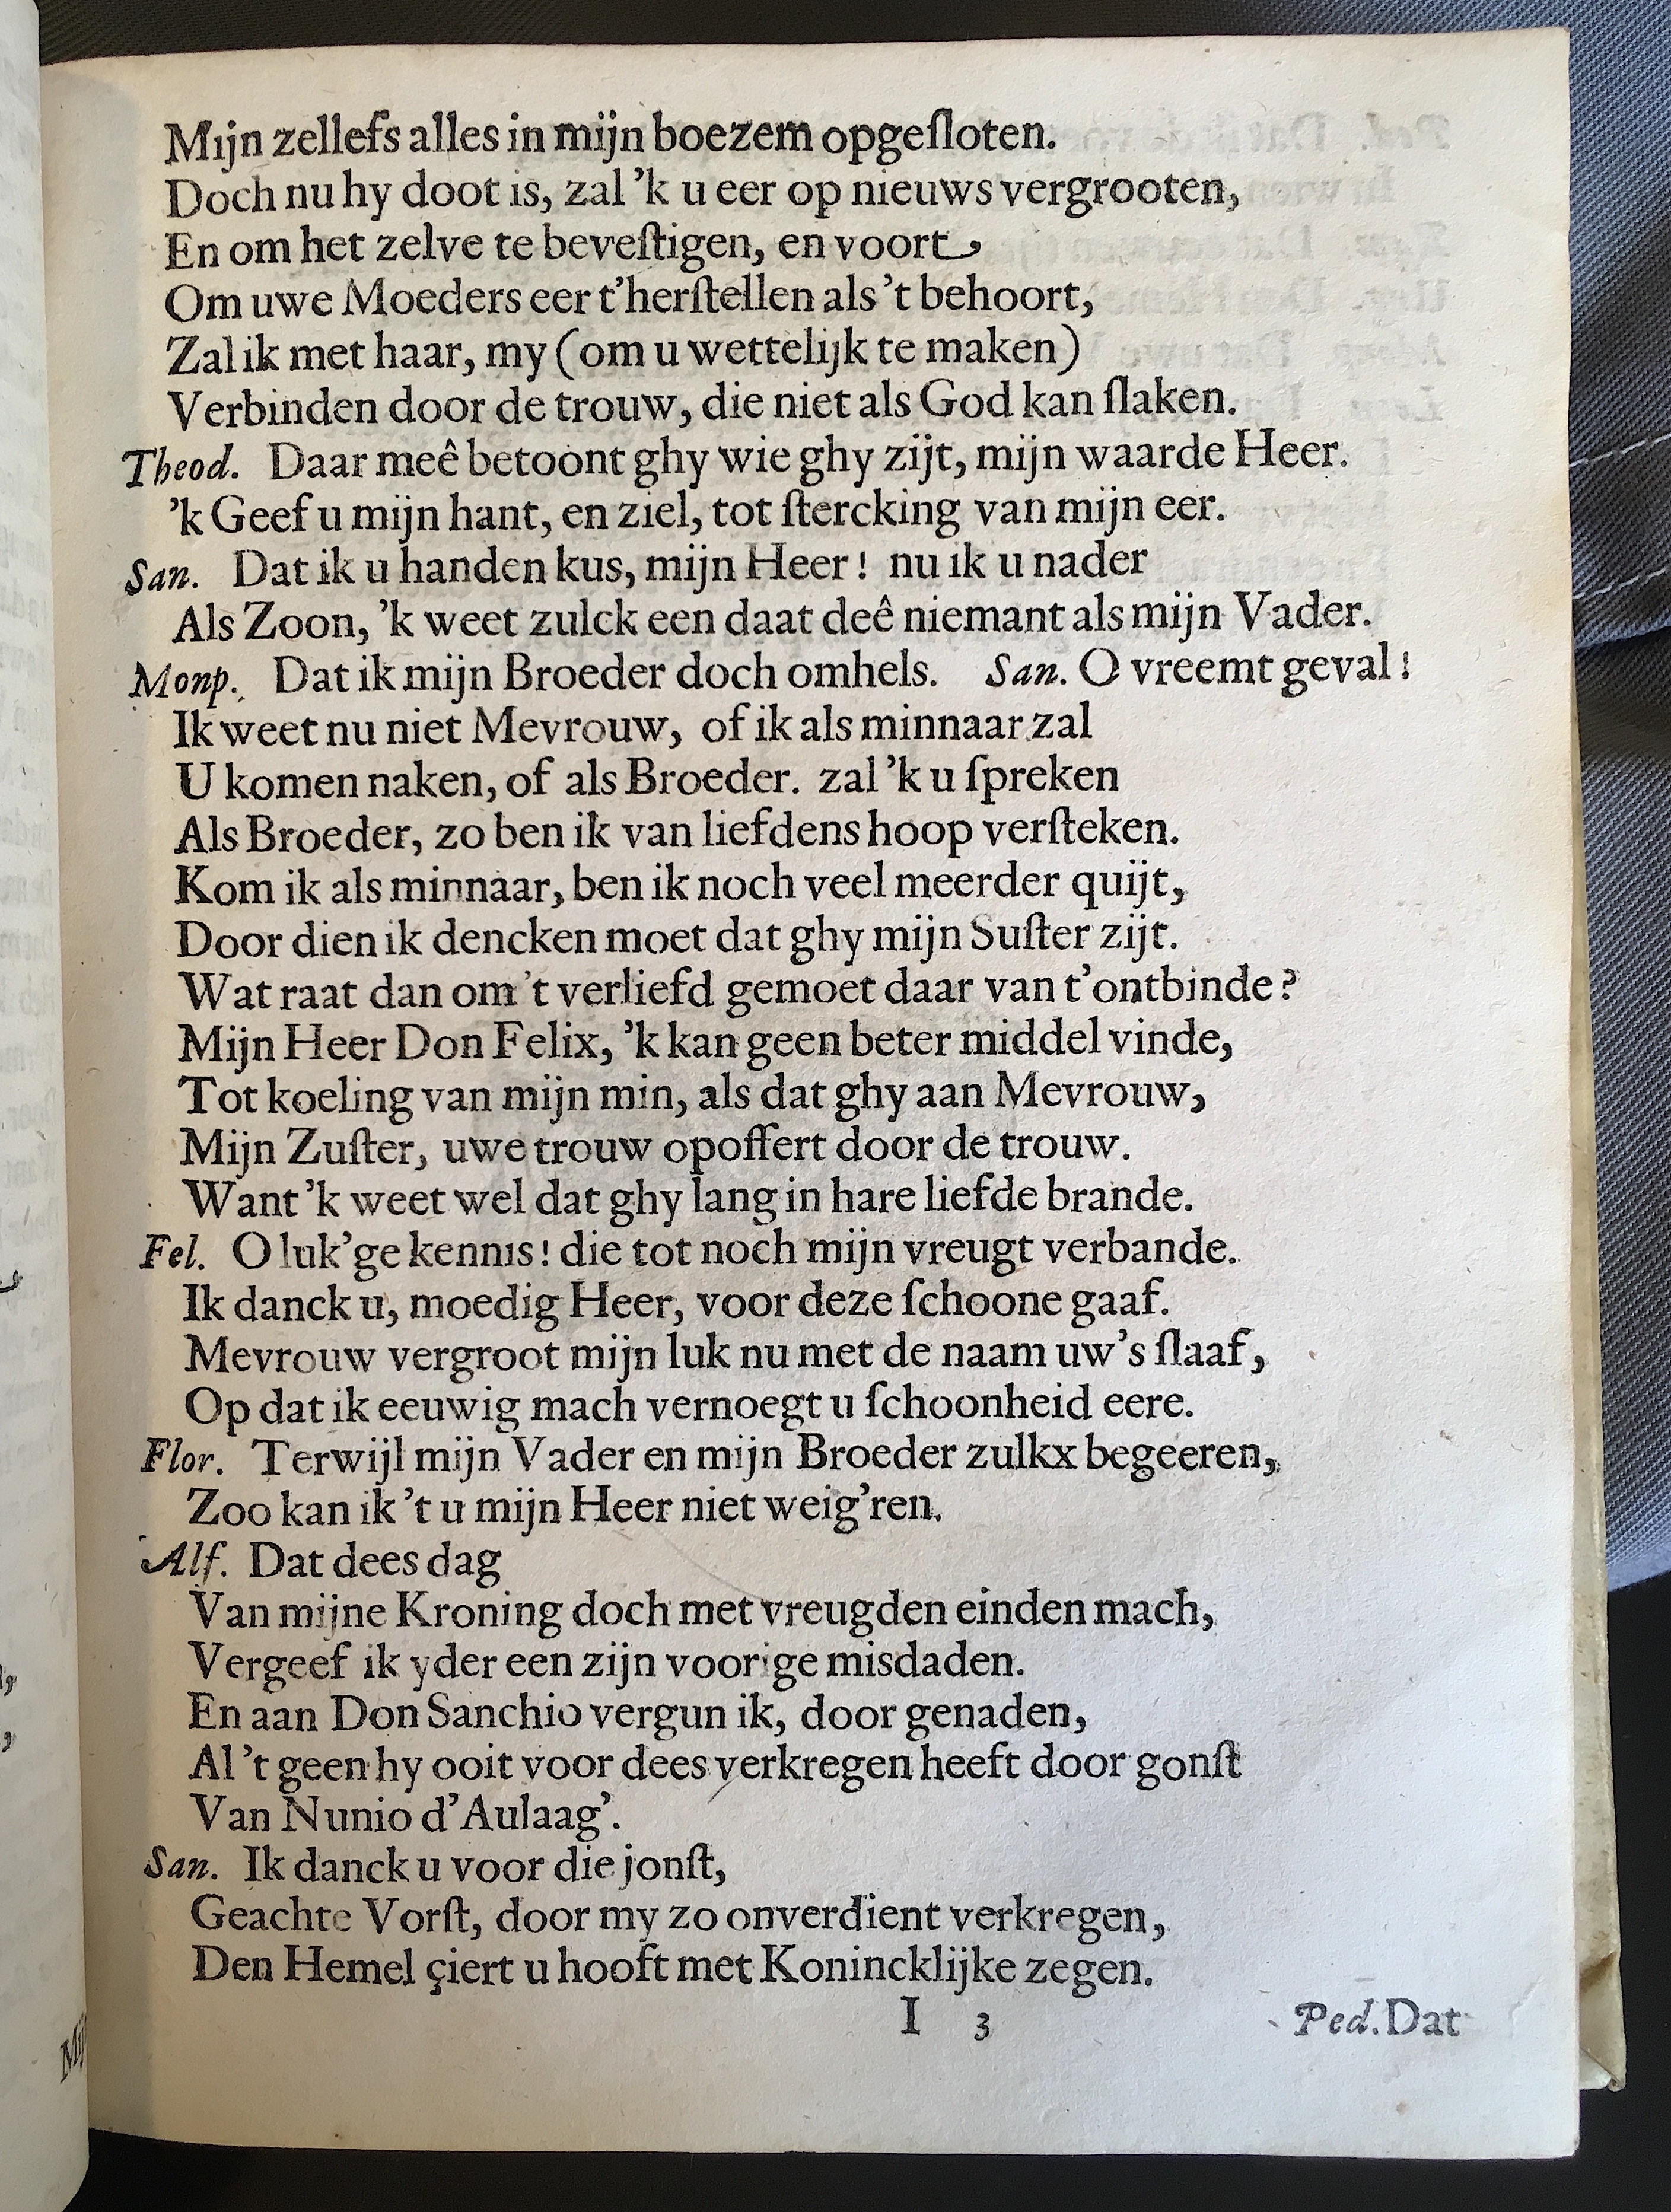 Mijn zellefs alles in mijn boezem opgeſloten.
Doch nu hy doot is, zal 'k u eer op nieuws vergrooten,
En om het zelve te beveſtigen, en voort
Om uwe Moeders eer t'herſtellen als 't behoort,
Zal ik met haar, my (om u wettelijk te maken)
Verbinden door de trouw, die niet als God kan ſlaken.
Theod. Daar meê betoont ghy wie ghy zijt, mijn waarde Heer.
'k Geef u mijn hant, en ziel, tot ſtercking van mijn eer.
San. Dat ik u handen kus, mijn Heer! nu ik u nader
Als Zoon, 'k weet zulck een daat deê niemant als mijn Vader.
Monp. Dat ik mijn Broeder doch omhels. San. O vreemt geval!
Ik weet nu niet Mevrouw, of ik als minnaar zal
U komen naken, of als Broeder. zal 'k u ſpreken
Als Broeder, zo ben ik van liefdens hoop verſteken.
Kom ik als minnaar, ben ik noch veel meerder quijt,
Door dien ik dencken moet dat ghy mijn Suſter zijt.
Wat raat dan om 't verliefd gemoet daar van t'ontbinde?
Mijn Heer Don Felix, 'k kan geen beter middel vinde,
Tot koeling van mijn min, als dat ghy aan Mevrouw,
Mijn Zuſter, uwe trouw opoffert door de trouw.
Want 'k weet wel dat ghy lang in hare liefde brande.
Fel. O luk'ge kennis! die tot noch mijn vreugt verbande.
Ik danck u, moedig Heer, voor deze ſchoone gaaf.
Mevrouw vergroot mijn luk nu met de naam uw's ſlaaf,
Op dat ik eeuwig mach vernoegt u ſchoonheid eere.
Flor. Terwijl mijn Vader en mijn Broeder zulkx begeeren,
Zoo kan ik 't u mijn Heer niet weig'ren.
Alf. Dat dees dag
Van mijne Kroning doch met vreugden einden mach,
Vergeef ik yder een zijn voorige misdaden.
En aan Don Sanchio vergun ik, door genaden,
Al 't geen hy ooit voor dees verkregen heeft door gonſt
Van Nunio d'Aulaag'.
San. Ik danck u voor die jonſt,
Geachte Vorſt, door my zo onverdient verkregen,
Den Hemel çiert u hooft met Konincklijke zegen.
I 3 Ped. Dat